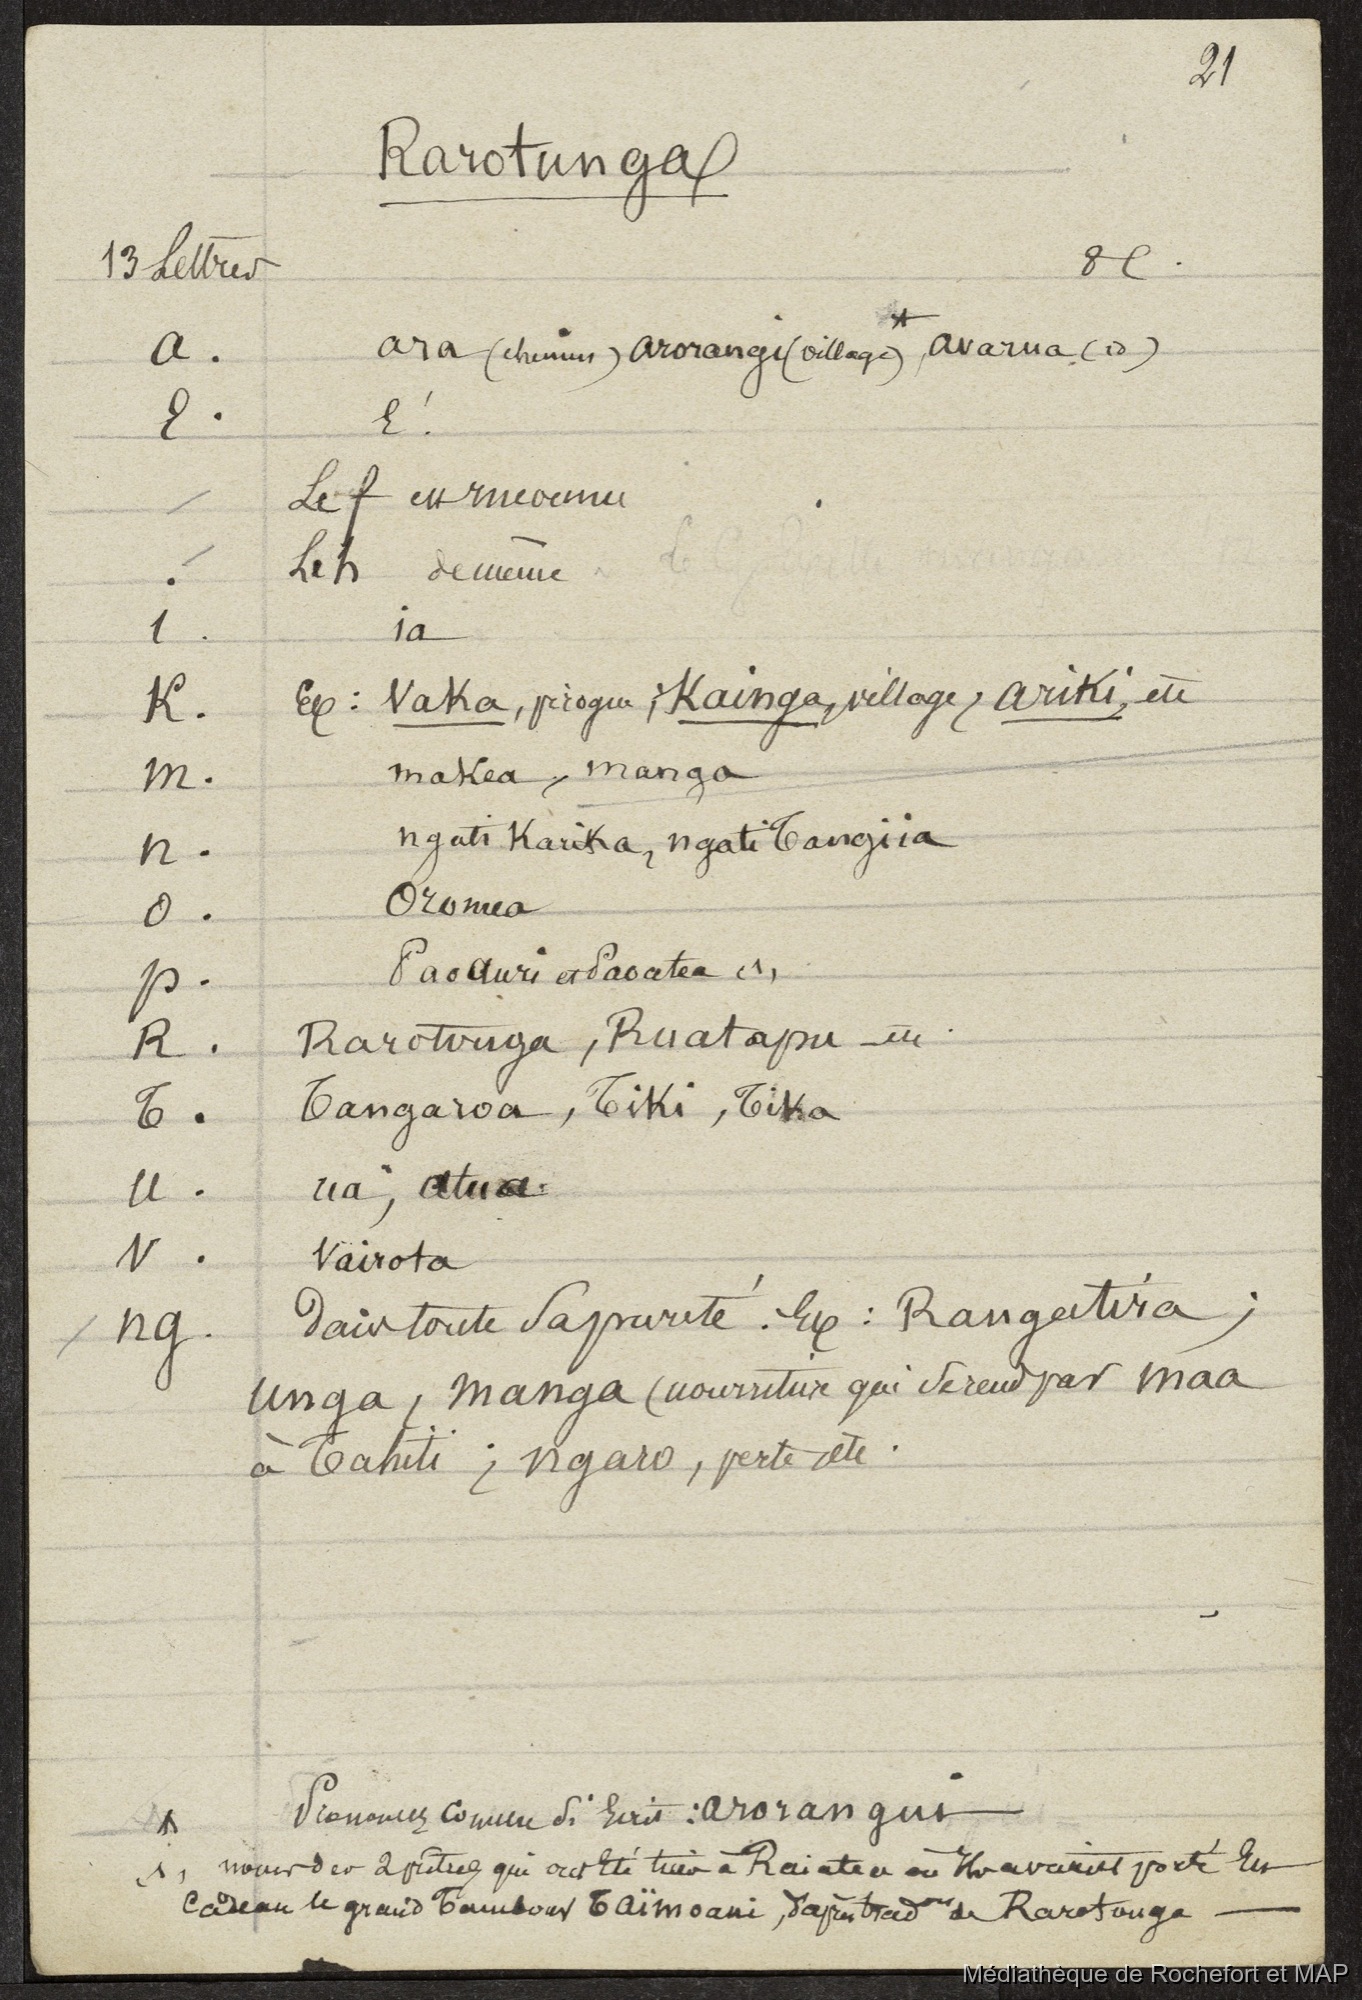 21
Rarotunga
13 Lettres 8 C.
a. ara (chemin) arorangi (village)*, avarua (id)
E. E!
Le f est inconnu
Le h de même
i. ia
K. Ex: Vaka, pirogue; Kainga, village, ariki, etc
m. makea, manga
n. ngati Karika, ngati Tangiia
o. Oromea
p. Paoauri et Paoatea (1)
R. Rarotonga, Ruatapu etc.
T. Tangaroa, Tiki, Tika
u. ua, atua.
V. Vairota
ng. Dans toute sa pureté. Ex: Rangatira;
unga, manga (nourriture qui se rend par maa
à Tahiti; ngaro, perte etc.
* Prononcez comme si écrit: arorangui
1, noms des 2 prêtres qui ont été tués à Raiatea où ils avaient porté en
cadeau le grand Tambour Taïmoani, d'après tradons de Rarotonga
Médiathèque de Rochefort et MAP